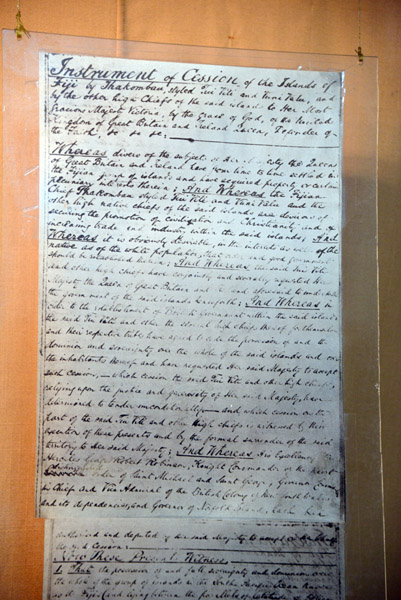 Instrument of Cission of the Islands of
Fiji by Thakombau, styled Tui Viti and Vuni Valu, and
by the other high Chiefs of the said islands to Her Most
Gracious Majesty Victoria, by the grace of God, of the United
Kingdom of Great Britain and Ireland Queen, Defender of
the Faith &c &c &c
Whereas divers of the subjects of Her Majesty the Queen
of Great Britain and Ireland have from time to time settled in
the Fijian group of islands and have acquired property or certain
interests therein; And Whereas the Fijian
Chief Thakombau styled Tui Viti and Vuni Valu and the
other high native chiefs of the said islands are desirous of
securing the promotion of civilization and Christianity and of
increasing trade and industry within the said islands; And
Whereas it is obviously desirable, in the interests as well of the
native as of the white population, that order and good government
should be established therein; And Whereas the said Tui Viti
and other high chiefs have conjointly and severally requested Her
Majesty the Queen of Great Britain and Ireland to undertake
the Government of the said islands henceforth; And Whereas in
order to the establishment of British Government within the said islands
the said Tui Viti and other the several high chiefs thereof for themselves
and their respective tribes have agreed to cede the possession of and the
dominion and sovereignty over the whole of the said islands and over
the inhabitants thereof and have requested Her said Majesty to accept
such cession, — which cession the said Tui Viti and other high chiefs,
relying upon the justice and generosity of Her said Majesty, have
determined to tender unconditionally — and which cession on the
part of the said Tui Viti and other high chiefs is witnessed by their
execution of these presents and by the formal surrender of the said
territory to Her said Majesty; And Whereas His Excellency Sir
Hercules George Robert Robinson, Knight Commander of the
order of Saint Michael and Saint George, Governor Comm
in Chief and Vice Admiral of the British Colony of New South Wales
and its dependencies, and Governor of Norfolk Island, hath been
authorized and deputed by Her said Majesty to accept
the said Cession:
Now These Presents Witness
1. That the possession of and full sovereignty and dominion over
the whole of the group of islands in the South Pacific Ocean known
as Fijis (and lying between the parallels of latitude of